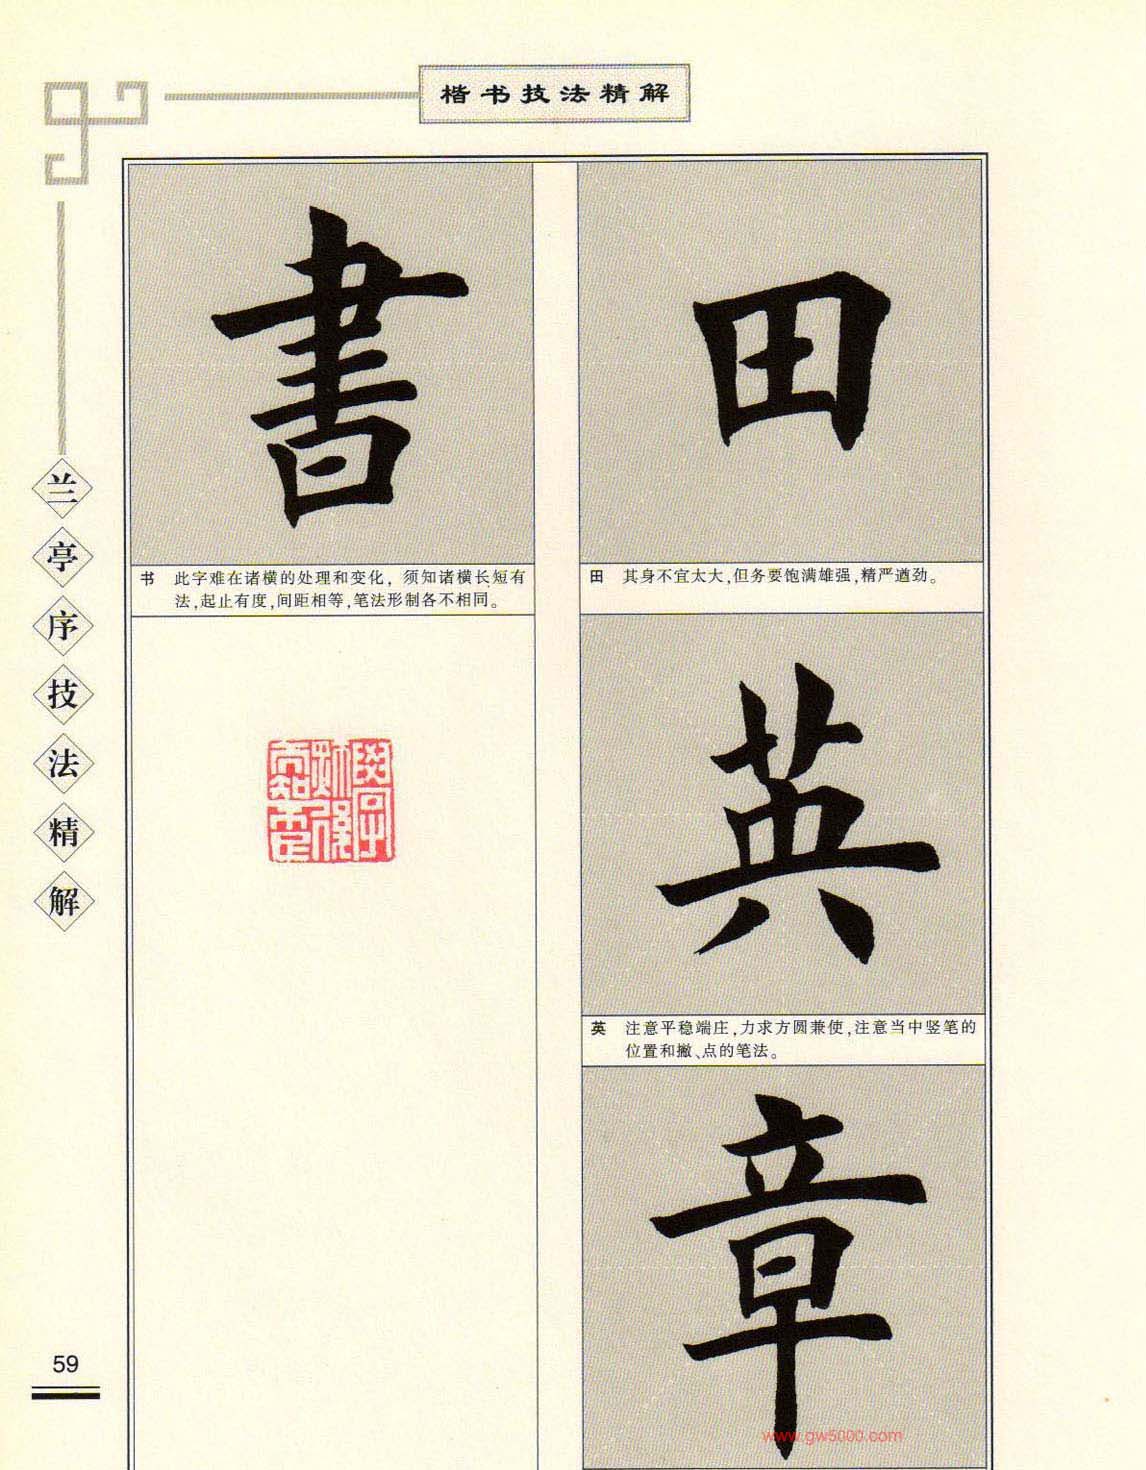 楷书技法精解
兰亭序技法精解
田
田 其身不宜太大,但务要饱满雄强,精严遒劲。
英
英 注意平稳端庄,力求方圆兼使,注意当中竖笔的
位置和撇、点的笔法。
章
書
书 此字难在诸横的处理和变化,须知诸横长短有
法,起止有度,间距相等,笔法形制各不相同。
59
www.gw5000.com